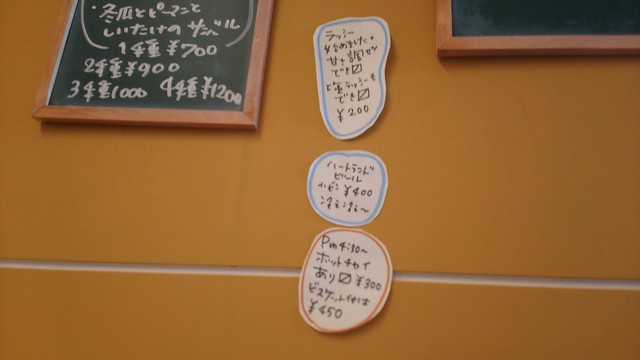 ・冬瓜とピーマンと
しいたけの サブル
1種¥700
2種¥900
3種1000 4種¥1200
ラッシー
始めました。
甘さ調せつ
でき〼
塩ラッシーも
でき〼
¥200
ハートランド
ビール
小ビン ¥400
Pm4:30〜
ホットチャイ
あり〼 ¥300
ビスケット付は
¥450